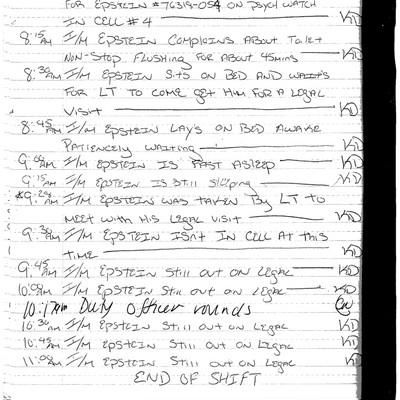 FOR EPSTEIN #76318-054 ON PSYCH WATCH
IN CELL #4 KD
8:15AM I/M EPSTEIN COMPLAINS ABOUT TOILET
NON-STOP FLUSHING FOR ABOUT 45MINS KD
8:30AM I/M EPSTEIN SITS ON BED AND WAITS
FOR LT TO COME GET HIM FOR A LEGAL
VISIT KD
8:45AM I/M EPSTEIN LAYS ON BED AWAKE
PATIENCELY WAITING KD
9:00AM I/M EPSTEIN IS FAST ASLEEP KD
9:15AM I/M EPSTEIN IS STILL SLEEPING KD
I/M EPSTEIN WAS TAKEN BY LT TO
MEET WITH HIS LEGAL VISIT KD
9:30AM I/M EPSTEIN ISN'T IN CELL AT THIS
TIME KD
9:45AM I/M EPSTEIN STILL OUT ON LEGAL KD
10:00AM I/M EPSTEIN STILL OUT ON LEGAL KD
10:17AM Duty Officer rounds
10:30AM I/M EPSTEIN STILL OUT ON LEGAL KD
10:45AM I/M EPSTEIN STILL OUT ON LEGAL KD
11:00AM I/M EPSTEIN STILL OUT ON LEGAL KD
END OF SHIFT